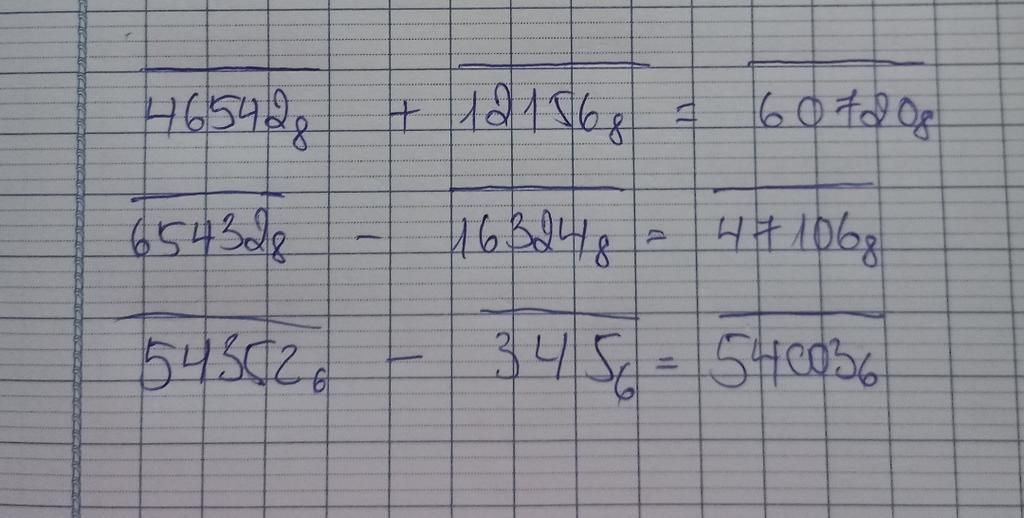 46542₈ + 12156₈ = 60720₈
65432₈ - 16324₈ = 47106₈
54352₆ - 345₆ = 54003₆